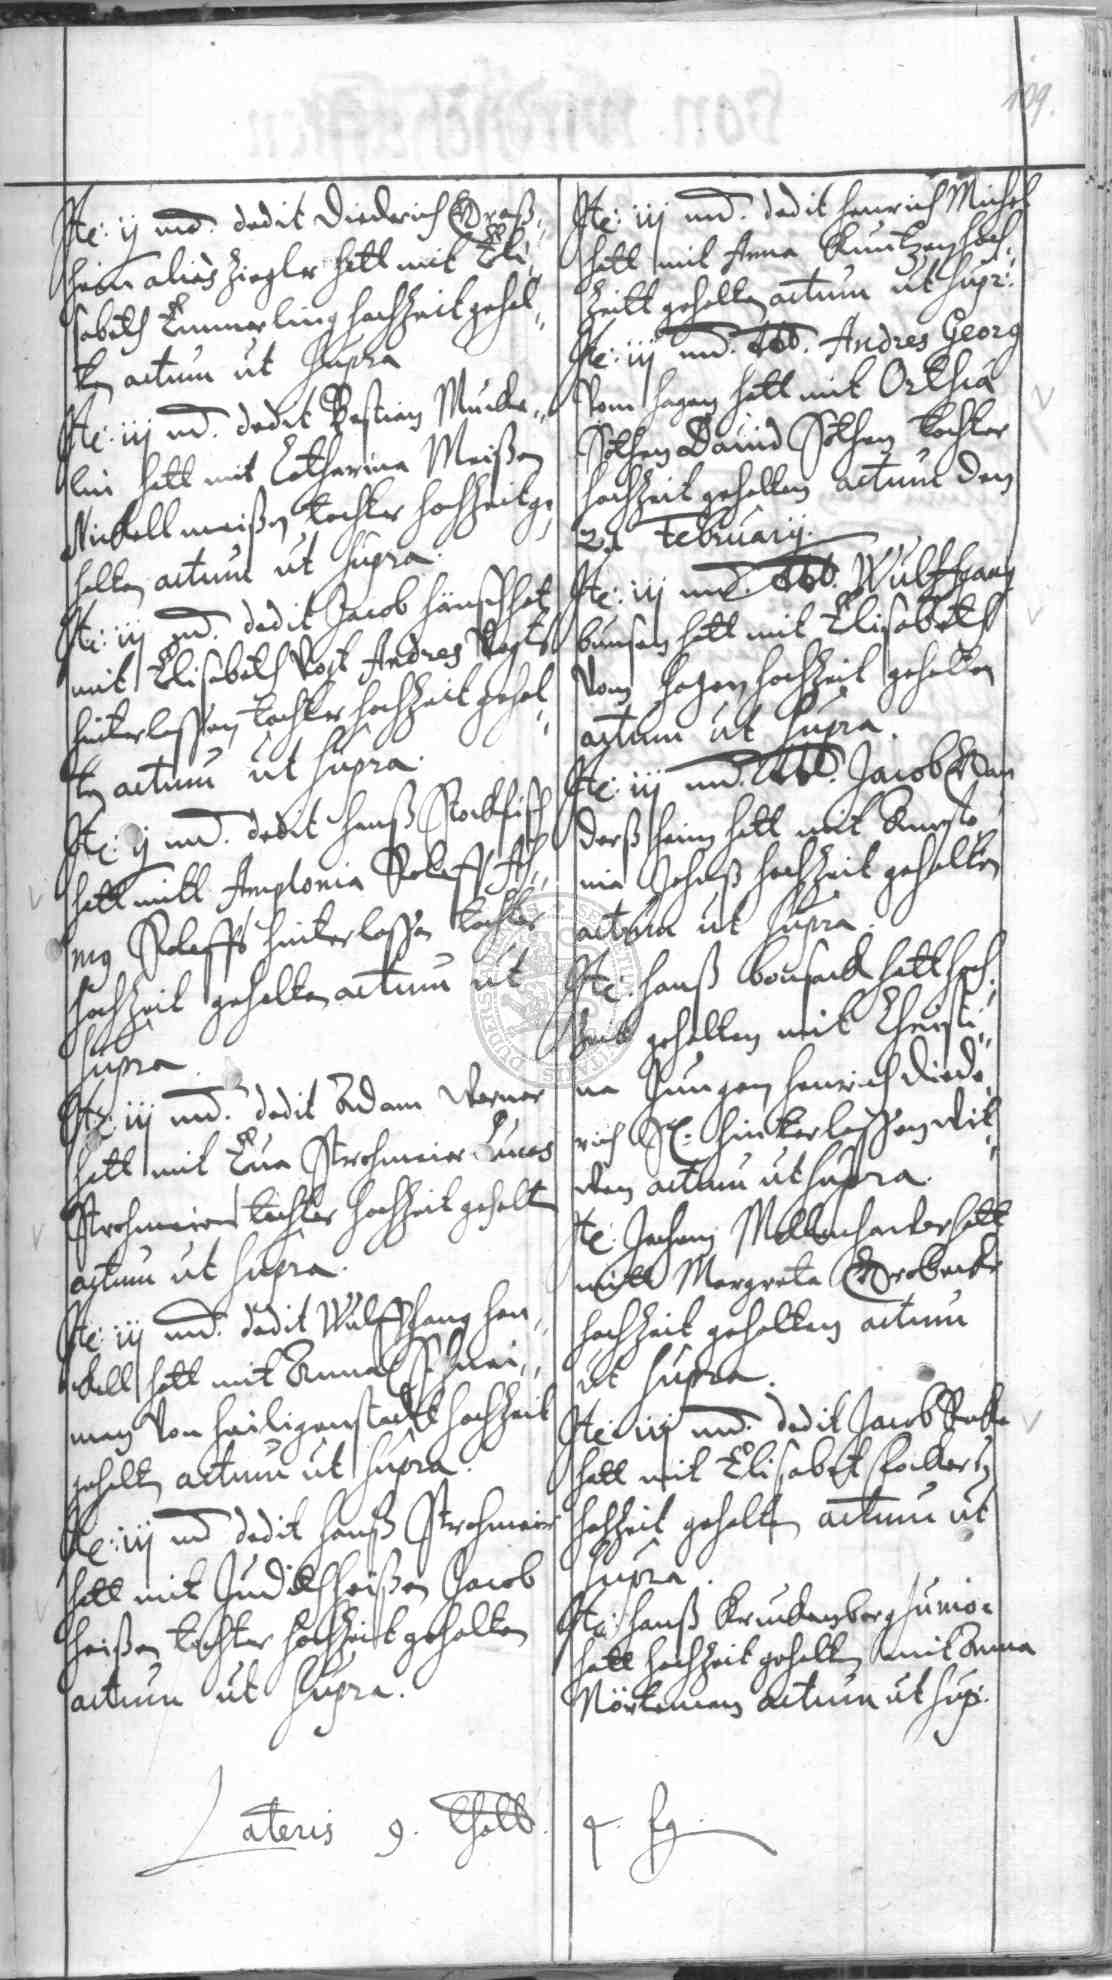 199.
Ite: ij md. dedit Diederich Graß¬
heim aliàs Ziegler hatt mit Eli¬
sabeth Emmerling hochZeit gehal¬
ten actum ut supra
Ite: iij md. dedit Bastian Mucke¬
lin hatt mit Catharina Meißen
Nickell meißen tochter hochZeit ge¬
halten actum ut supra.
Ite: iij md. dedit Jacob hat
mit Elisabeth Vogt Andres Vogts
hinterlassen tochter hochZeit gehal¬
ten actum ut supra.
Ite: ij md. dedit hanß Stockfisch
hatt mitt Amplonia Roleffs
Roleffs hinterlassen tochter
hochZeit gehalten actum ut
supra.
Ite: iij md. dedit Adam Werner
hatt mit Eua Strohmeier Lucas
Strohmeiers tochter hochZeit gehalten
actum ut supra.
Ite: iij md. dedit Wulffgang hen¬
ckell hatt mit Anna
von heiligenstadt hochZeit
gehalten actum ut supra.
Ite: iij md dedit hanß Strohmeier
hatt mit Judith heißen Jacob
heißen tochter hochZeit gehalten
actum ut supra.
Ite: iij md. dedit henrich Michel
hatt mit Anna Kuntzen hoch¬
Zeitt gehalten actum ut supr:
Ite: iij md. Andres Georg
vom hagen hatt mit Orthia
Sothen Dauid Sothen tochter
hochZeit gehalten actum den
21 February.
Ite: iij md. Wulffgang
bunsen hatt mit Elisabeth
vom hagen hochZeit gehalten
actum ut supra.
Ite: iij md. Jacob Gan
derßheim hatt mit Kunge
nia hochZeit gehalten
actum ut supra.
Ite: hanß bonsack hatt hoch¬
Zeit gehalten mit Christi¬
na Jungen henrich Diede¬
rich hinterlassen wit¬
wen actum ut supra.
Ite: Jochem hatt
mitt Margreta Grobecker
hochZeit gehalten actum
ut supra.
Ite: iij md. dedit Jacob
hatt mit Elisabet
hochZeit gehalten actum ut
supra.
Ite: hanß Kruckenberg Junior
hatt hochZeit gehalten mit Anna
Nörteman actum ut sup:
Lateris 9. thall. 4. sg.